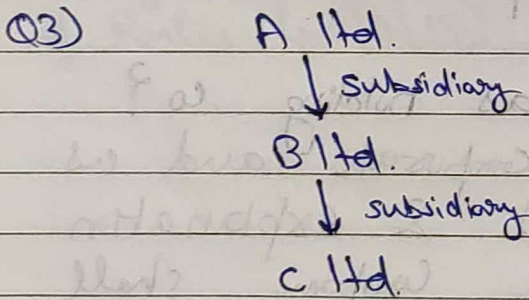 Q3) A ltd.
↓ subsidiary
B ltd.
↓ subsidiary
C ltd.